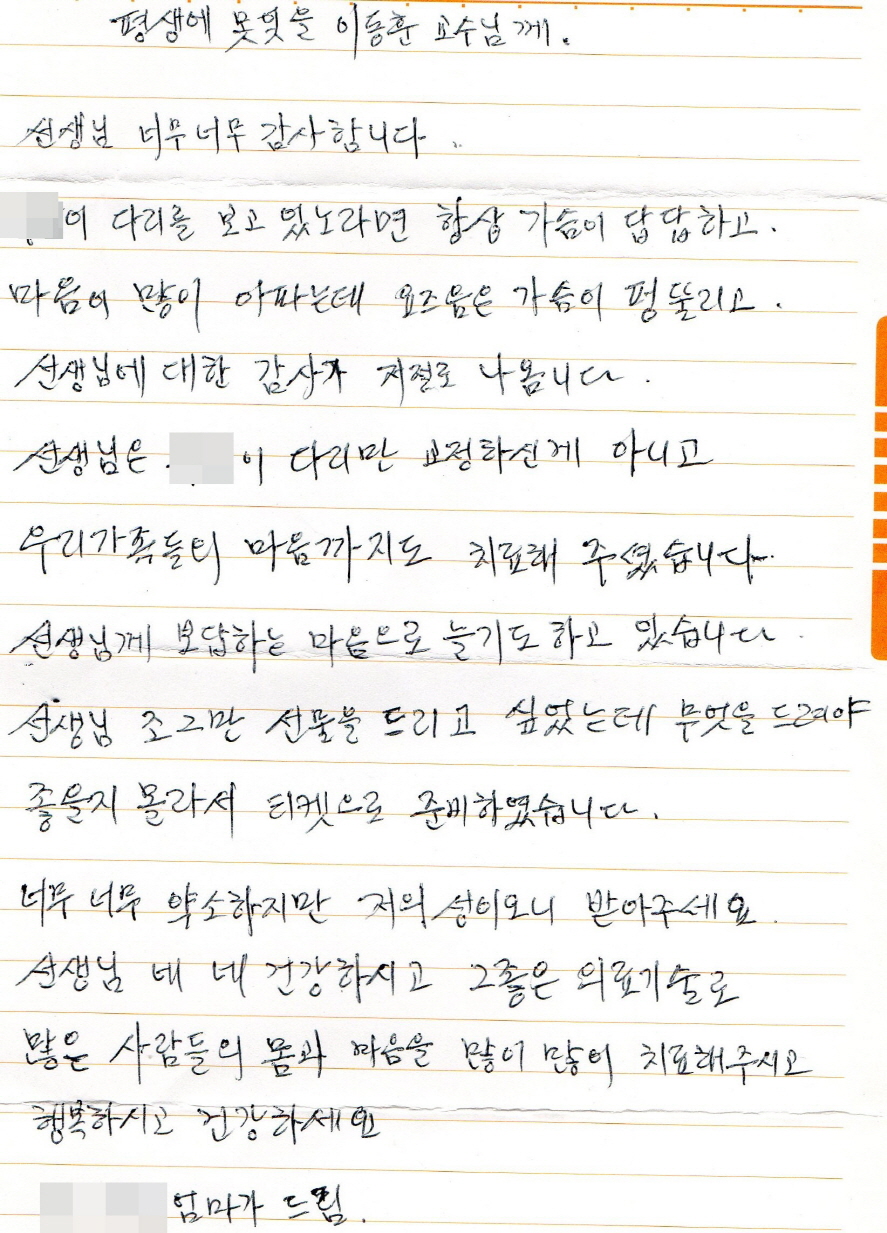 평생에 못잊을 이동훈 교수님께.
선생님 너무너무 감사합니다.
이 다리를 보고 있노라면 항상 가슴이 답답하고.
마음이 많이 아파는데 요즈음은 가슴이 펑 뚤리고.
선생님에 대한 감사가 저절로 나옵니다.
선생님은 이 다리만 교정하신게 아니고
우리가족들의 마음까지도 치료해 주셨습니다.
선생님께 보답하는 마음으로 늘기도하고 있습니다
선생님 조그만 선물을 드리고 싶었는데 무엇을 드려야
좋을지 몰라서 티켓으로 준비하였습니다.
너무 너무 약소하지만 저의 성이오니 받아주세요.
선생님 네 네 건강하시고 그좋은 의료기술로
많은 사람들의 몸과 마음을 많이 많이 치료해주시고
행복하시고 건강하세요
엄마가 드림.